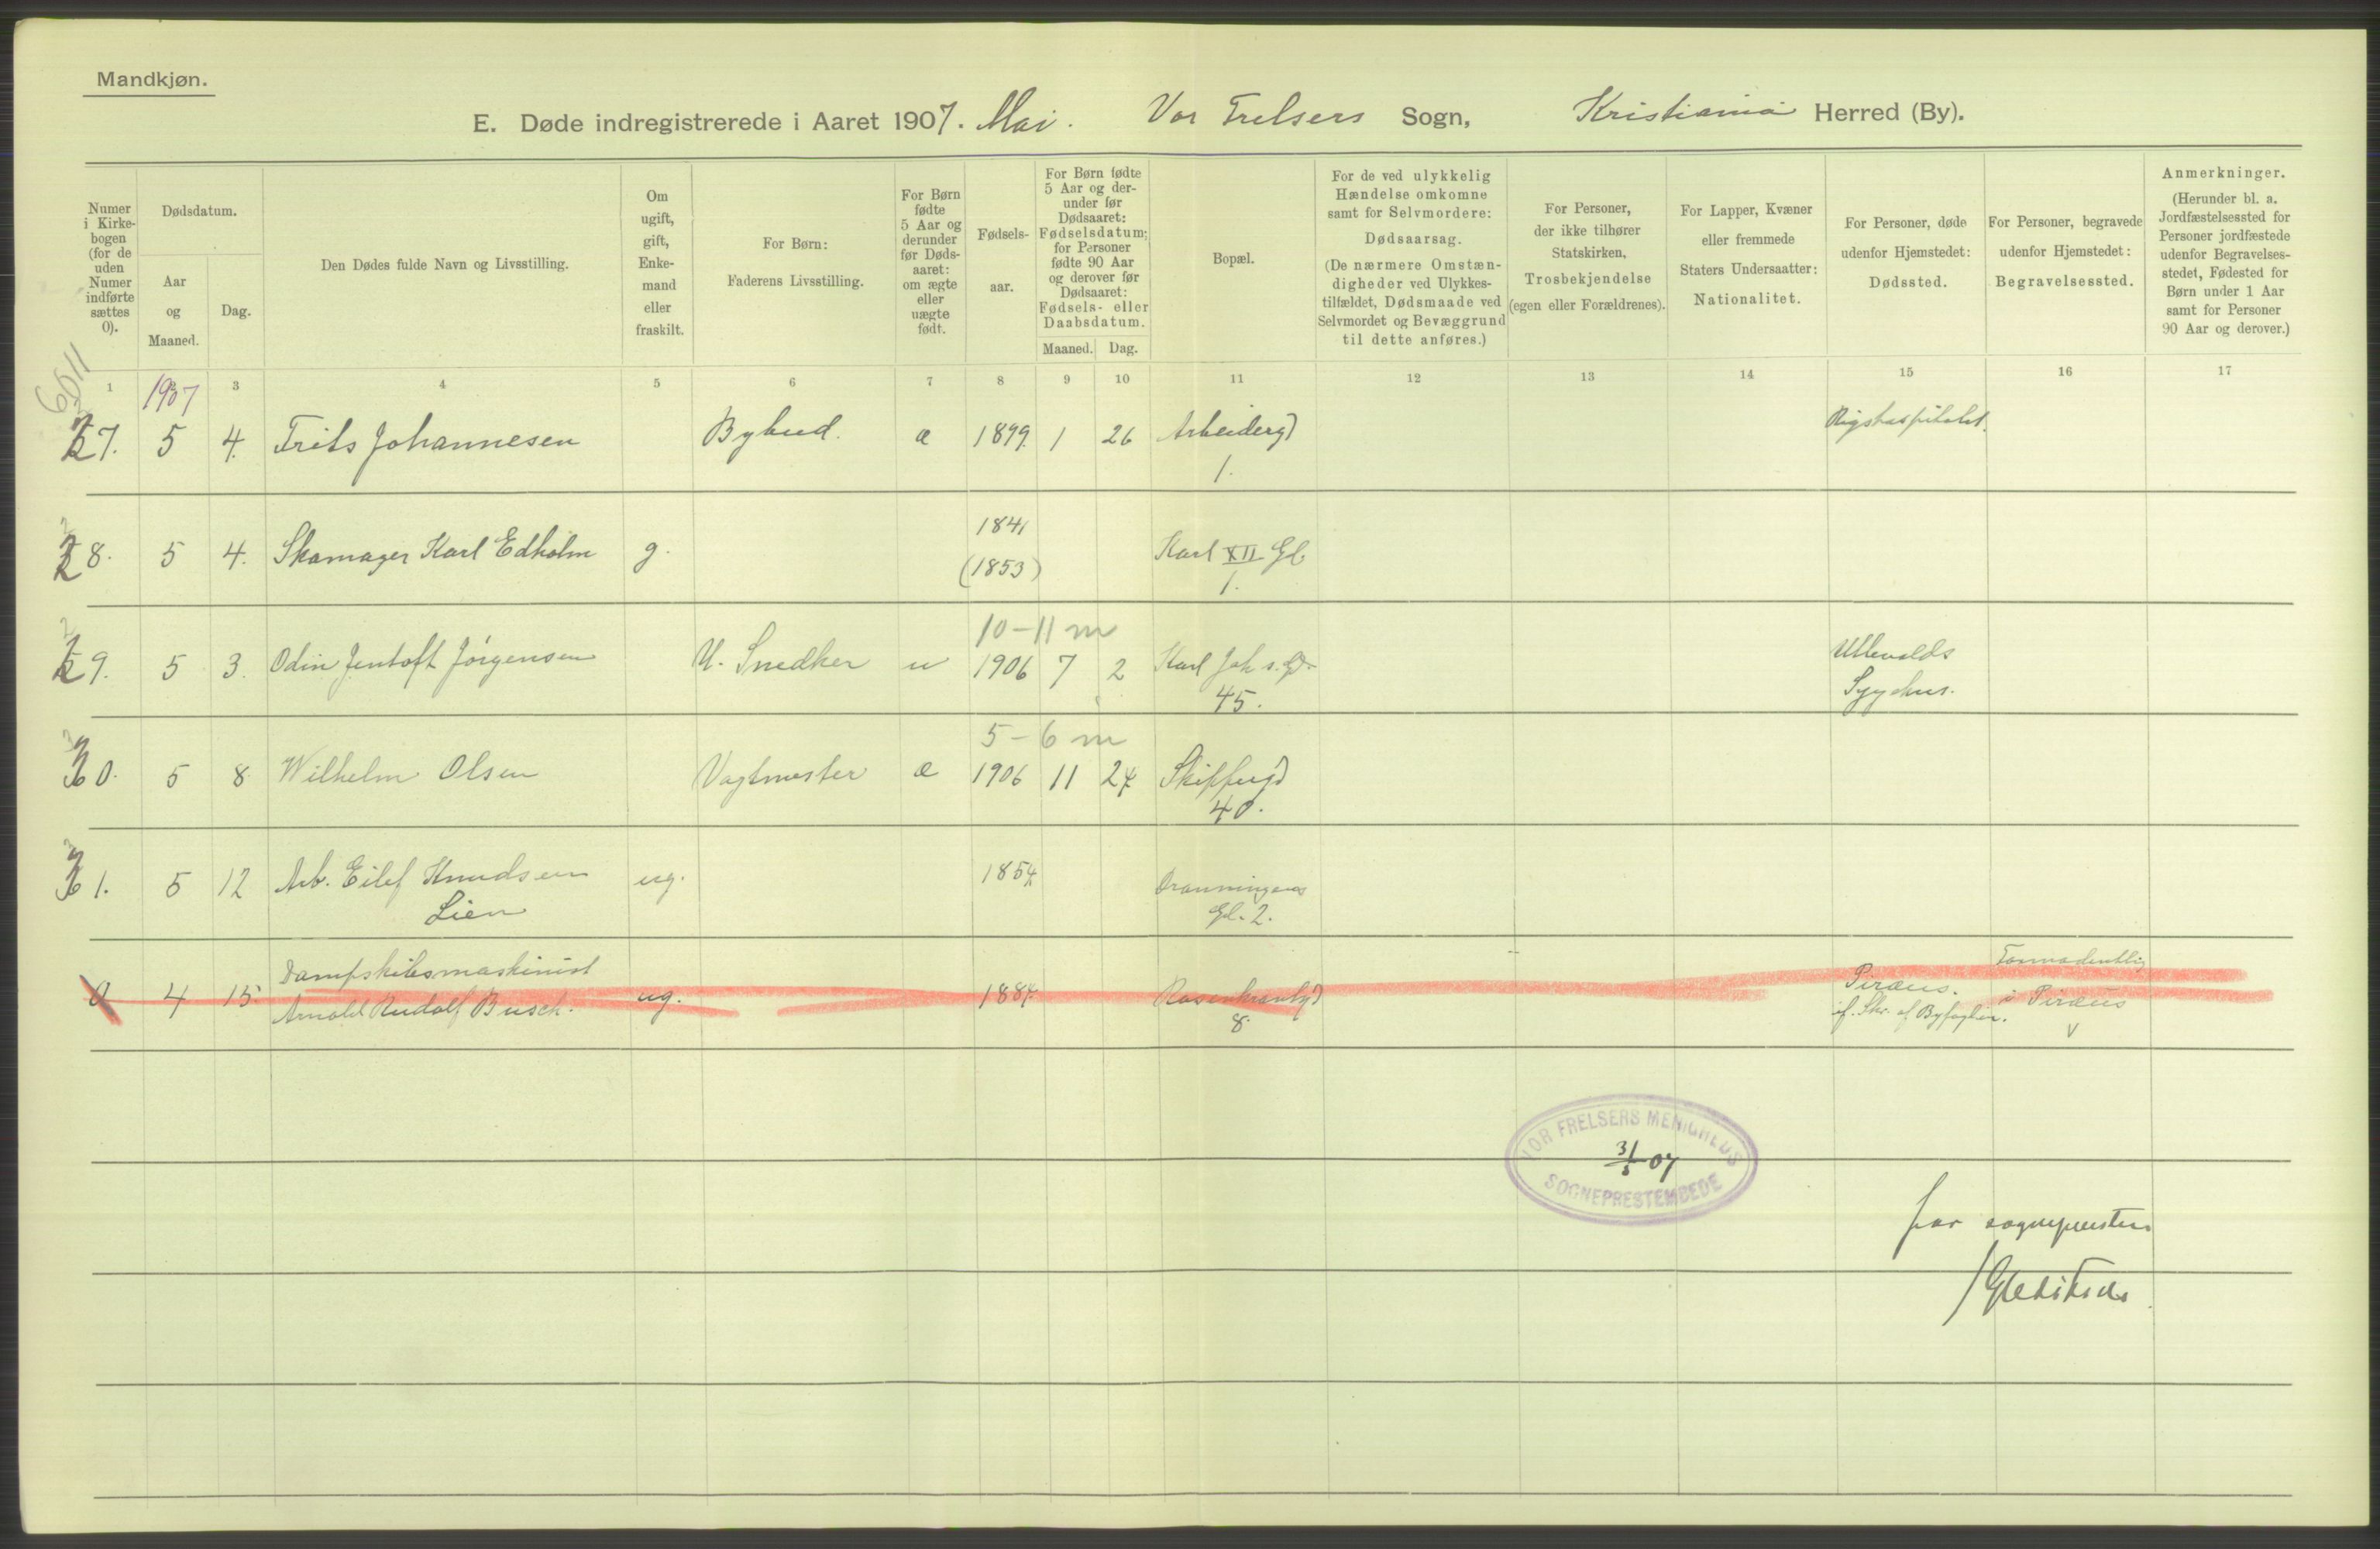 Mandkjøn.
E. Døde indregistrerede i Aaret 1907. Mai. Vor Frelsers Sogn, Kristiania Herred (By).
Numer
i Kirke-
bogen
(for de
uden
Numer
indførte
sættes
0).
Dødsdatum.
Aar
og
Maaned.
Dag.
Den Dødes fulde Navn og Livsstilling.
Om
ugift,
gift,
Enke-
mand
eller
fraskilt.
For Børn:
Faderens Livsstilling.
For Børn
fødte
5 Aar og
derunder
før Døds-
aaret:
om ægte
eller
uægte
født.
Fødsels-
aar.
For Børn fødte
5 Aar og der-
under før
Dødsaaret:
Fødselsdatum;
for Personer
fødte 90 Aar
og derover før
Dødsaaret:
Fødsels- eller
Daabsdatum.
Maaned. Dag.
Bopæl.
For de ved ulykkelig
Hændelse omkomne
samt for Selvmordere:
Dødsaarsag.
(De nærmere Omstæn-
digheder ved Ulykkes-
tilfældet, Dødsmaade ved
Selvmordet og Bevæggrund
til dette anføres.)
For Personer,
der ikke tilhører
Statskirken,
Trosbekjendelse
(egen eller Forældrenes).
For Lapper, Kvæner
eller fremmede
Staters Undersaatter:
Nationalitet.
For Personer, døde
udenfor Hjemstedet:
Dødssted.
For Personer, begravede
udenfor Hjemstedet:
Begravelsessted.
Anmerkninger.
(Herunder bl. a.
Jordfæstelsessted for
Personer jordfæstede
udenfor Begravelses-
stedet, Fødested for
Børn under 1 Aar
samt for Personer
90 Aar og derover.)
1 3 4 5 6 7 8 9 10 11 12 13 14 15 16 17
1907
27. 5 4. Frits Johannesen Bybud. æ 1899 1 26 Arbeiderg)
1.
Rigshospitalet.
28. 5 4. Skomager Karl Edholm g. 1841
(1853)
Karl XII Gd.
1.
10-11 m
29. 5 3. Odin Jentoft Jörgensen U. Snedker u 1906 7 2 Karl Joh s. Gd.
45.
Ullevolds
Sygehus.
5-6 m
30. 5 8 Wilhelm Olsen Vagtmester æ 1906 11 24 Skipperg)
40.
31. 5 12 Arb. Eilef Knudsen
Lien
ug. 1854 Dronningens
Gd. 2.
0 4 15. Dampskibsmaskinist
Arnold Rudolf Busch. ug. 1884 Rosenkrantzg)
8.
Piræus.
if. Skr. af Byfogden.
Formodentlig
i Piræus
VOR FRELSERS MENIGHEDS
31/5 07
SOGNEPRESTEMBEDE
for sognepresten